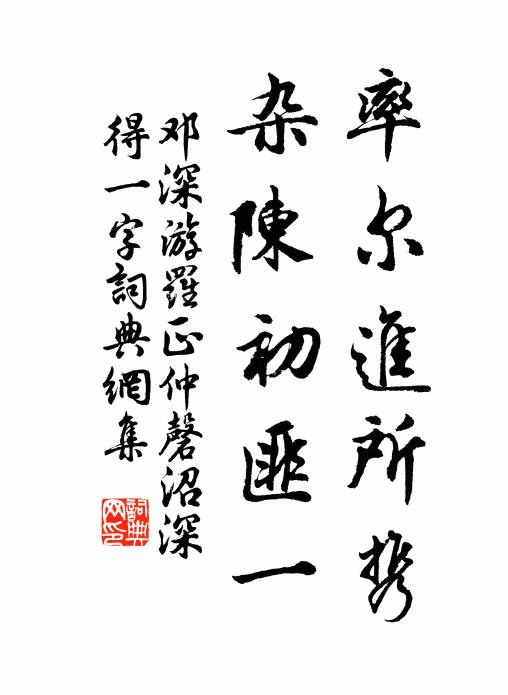 率尔進所携
杂陳初匪一
邓深游羅正仲磬沼深
得一字詞典網集
詞典网印